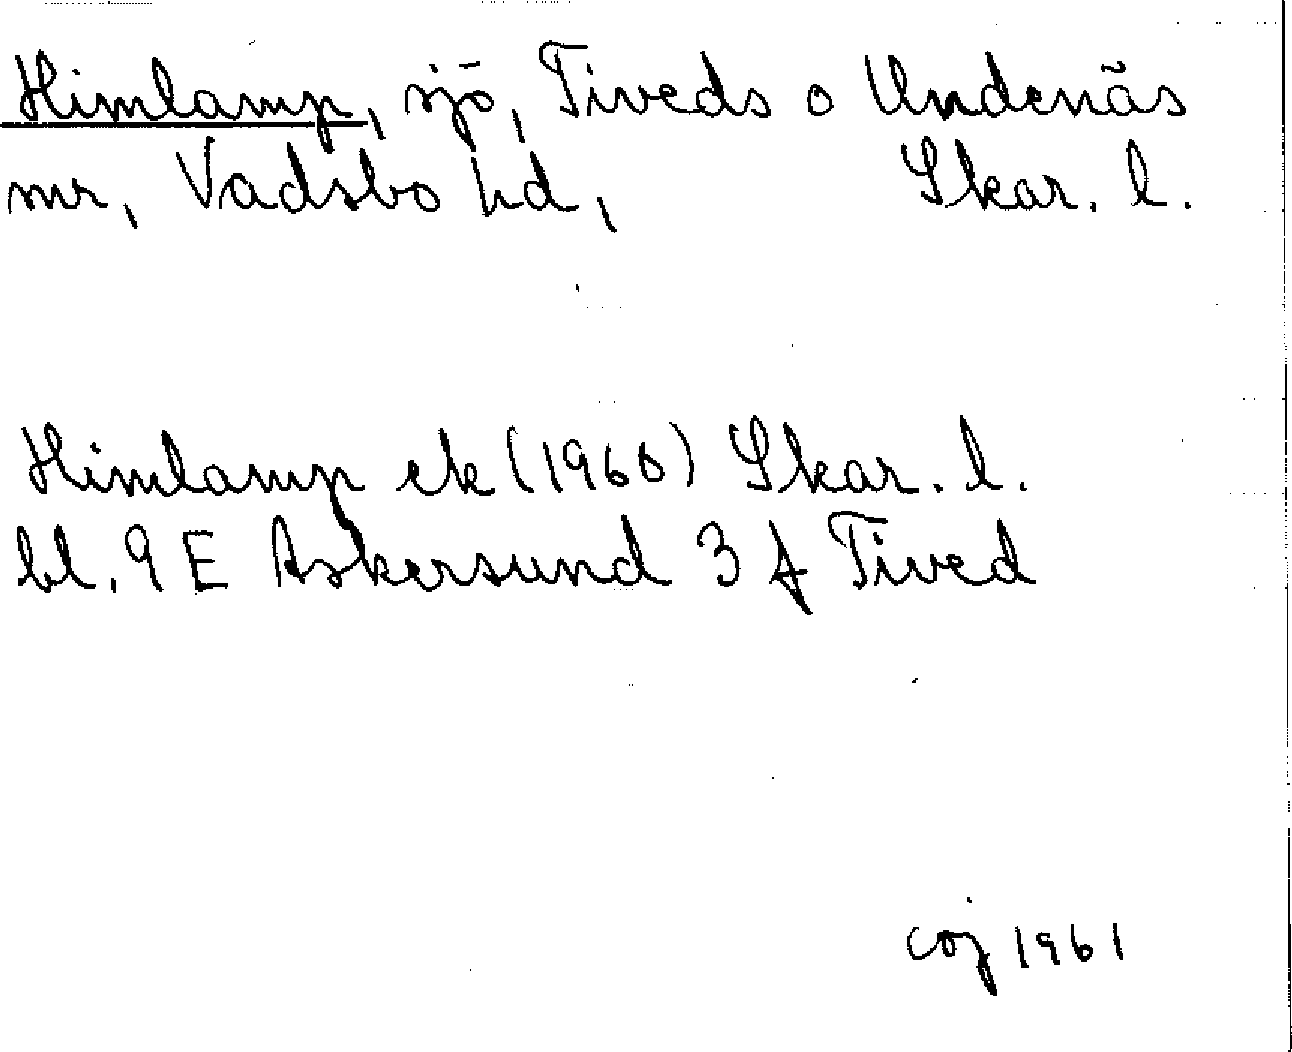 Himlamp, sjö, Tiveds o Undenäs
mr, Vadsbo hd, Skar. l.
Himlamp ek (1960) Skar. l.
bl. 9 E Askersund 3 f Tived
coj 1961